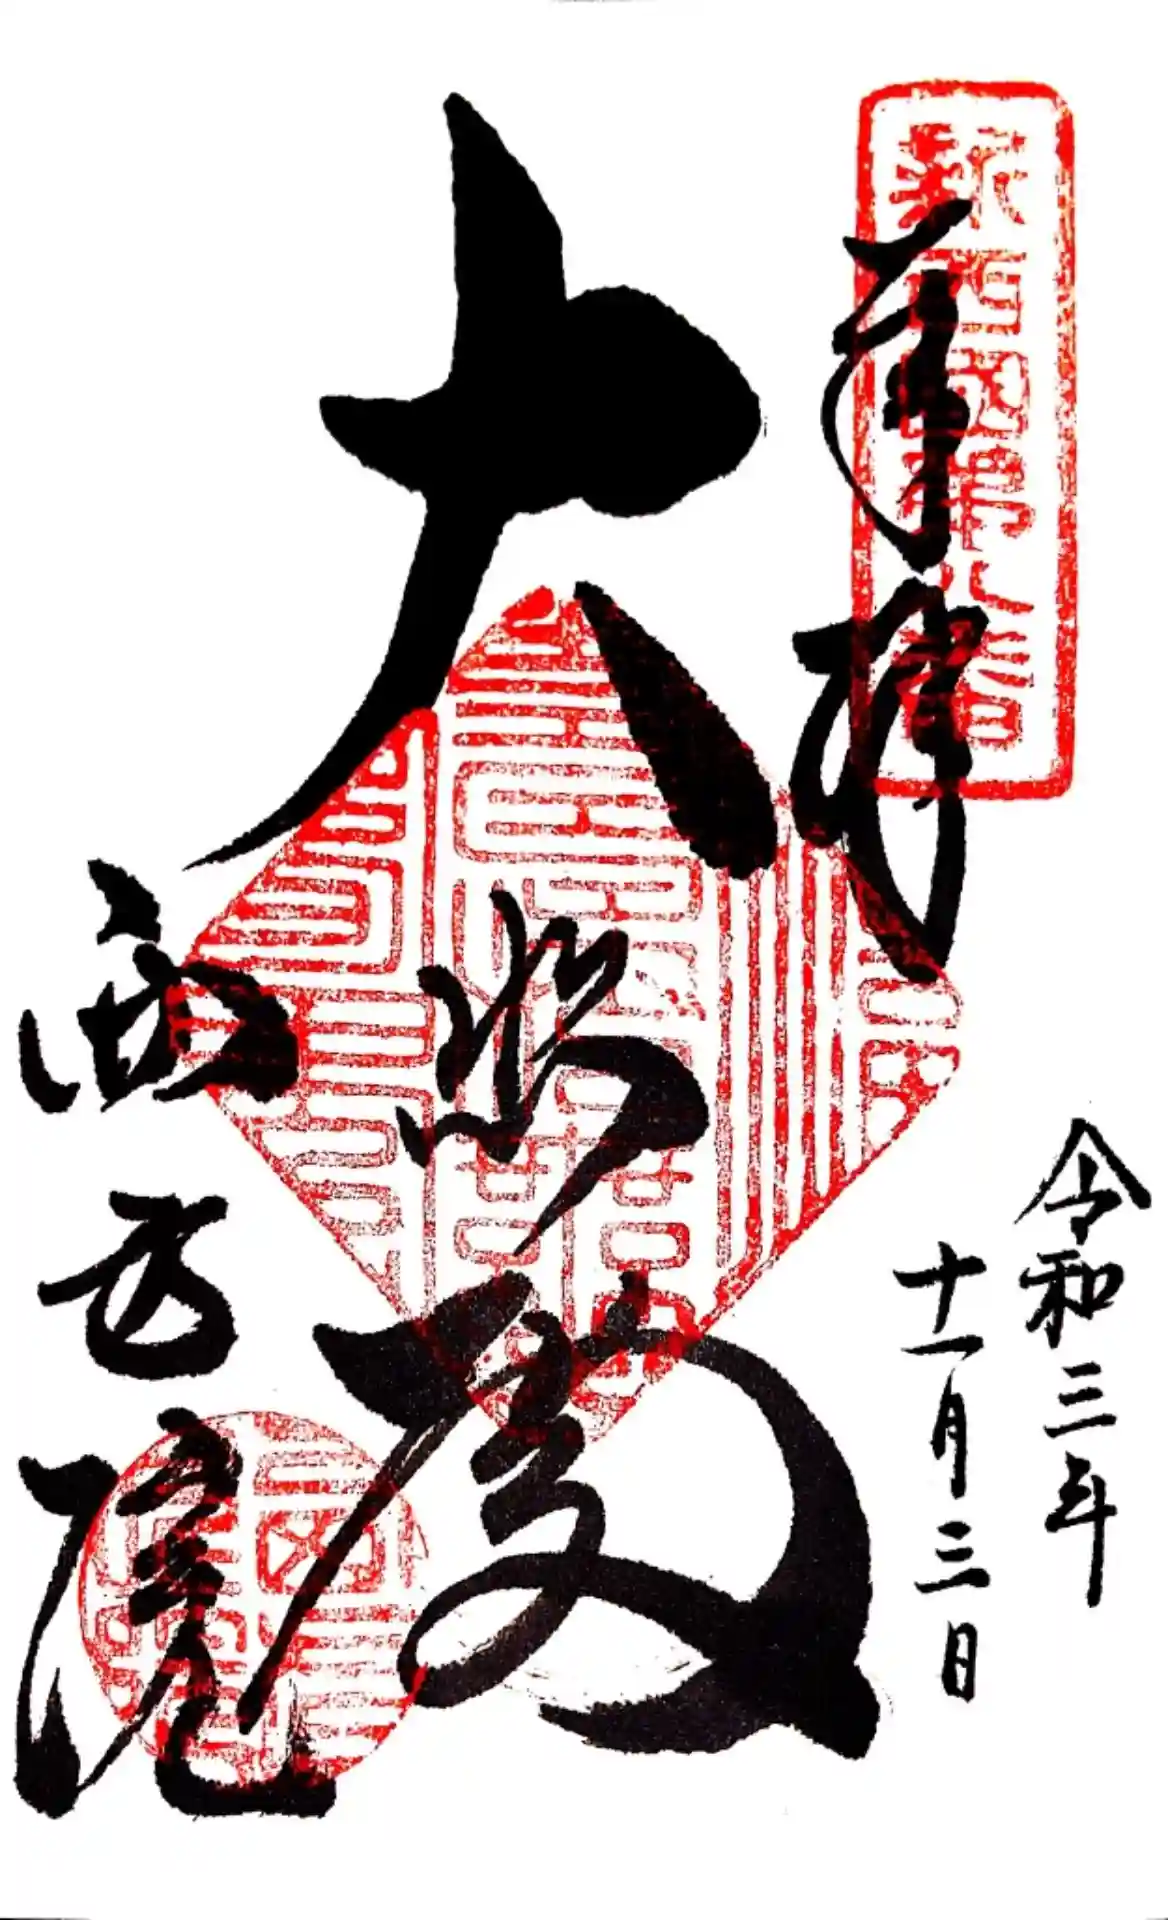 新西國第八番
奉拝
令和三年
十一月三日
大悲殿
西方院